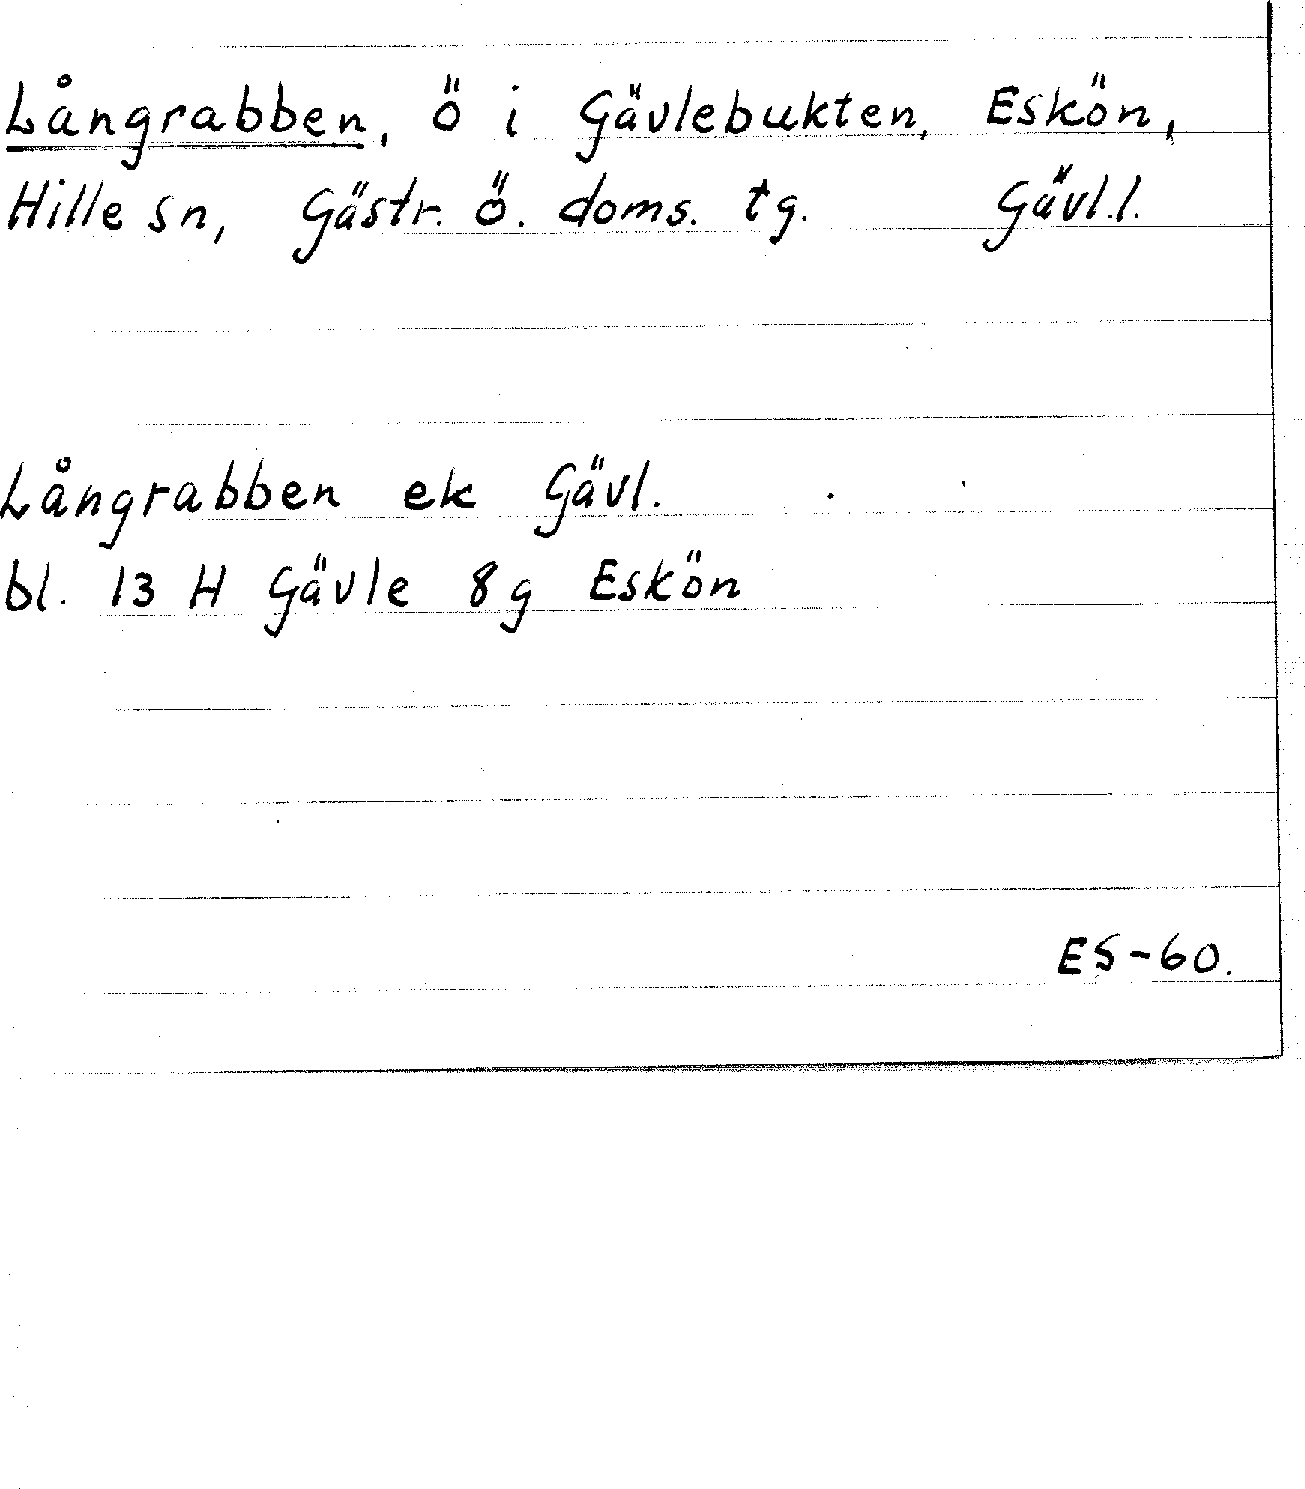 Långrabben, ö i Gävlebukten, Eskön,
Hille sn, Gästr. ö. doms. tg. Gävl.l.
Långrabben ek Gävl.
bl. 13 H Gävle 8g Eskön
ES-60.